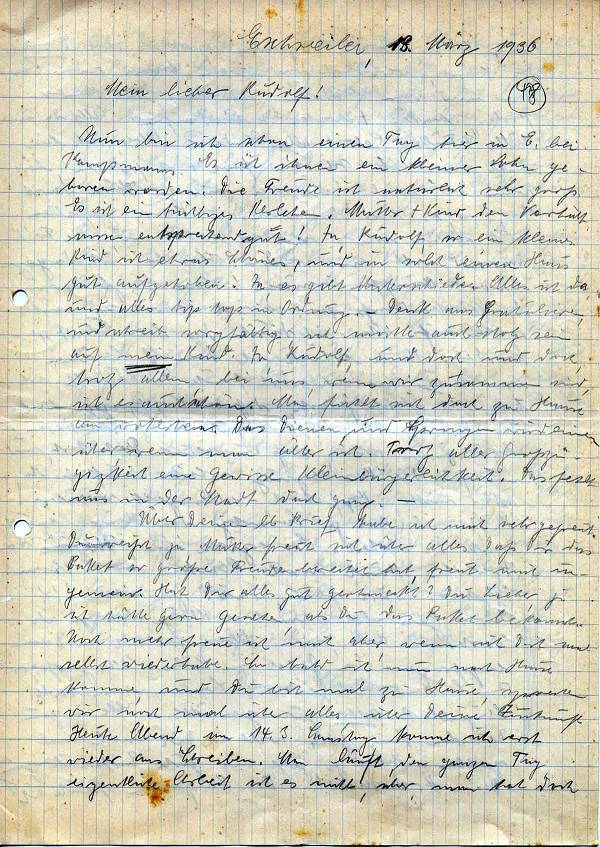 Eschweiler, 13. März 1936
48
Mein lieber Rudolf!
Nun bin ich schon einen Tag hier in E. bei
Kampmanns. Es ist ihnen ein kleiner Sohn ge-
boren worden. Die Freude ist natürlich sehr groß.
Es ist ein Kerlchen. Mutter + Kind den Verhält-
nissen entsprechend gut! Ja, Rudolf, so ein kleines
Kind ist etwas schönes, und in solch einem Haus
gut aufgehoben. Ja es gibt Unterschiede. Alles ist da
und alles tip top in Ordnung. – Denk ans Gratulieren,
und schreib sorgfältig, ich möchte auch stolz sein
auf mein Kind. Ja Rudolf, und doch und doch,
trotz allem bei uns, wenn wir zusammen sind,
ist es auch schön. Man fühlt sich doch zu Hause
am wohlsten. Das Dienen und Springen wird einem
über wenn man älter ist. Trotz aller Großzü-
gigkeit eine gewisse Kleinbürgerlichkeit. Das fehlt
uns in der Stadt doch ganz. –
Über Deinen lb. Brief habe ich mich sehr gefreut.
Du weißt ja, Mutter freut sich über alles. Daß Dir das
Paket so große Freude bereitet hat, freut mich un-
gemein. Hat Dir alles gut geschmeckt? Du Lieber, ja
ich hätte gern gesehen als Du das Paket bekamst.
Noch mehr freue ich mich aber, wenn ich Dich mal
selbst wiederhabe. Sobald ich nun nach Hause
komme und Du bist mal zu Hause, sprechen
wir noch mal über alles über Deine Zukunft.
Heute Abend am 14.3. Samstag komme ich erst
wieder ans Schreiben. Man läuft den ganzen Tag
eigentliche Arbeit ist es nicht, aber, man hat doch